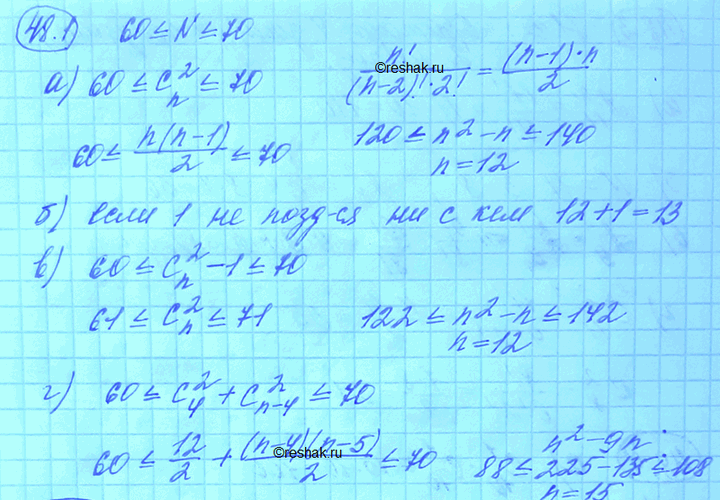 48.1) 60 ≤ N ≤ 70
а) 60 ≤ C²ₙ ≤ 70
n! / ((n-2)! · 2!) = (n-1)·n / 2
©reshak.ru
60 ≤ n(n-1)/2 ≤ 70
120 ≤ n² - n ≤ 140
n = 12
б) если 1 не позд-ся ни с кем 12+1=13
в) 60 ≤ C²ₙ - 1 ≤ 70
61 ≤ C²ₙ ≤ 71
122 ≤ n² - n ≤ 142
n = 12
г) 60 ≤ C²₄ + C²ₙ₋₄ ≤ 70
60 ≤ 12/2 + (n-4)(n-5)/2 ≤ 70
©reshak.ru
n² - 9n
88 ≤ 225 - 135 ≤ 108
n = 15